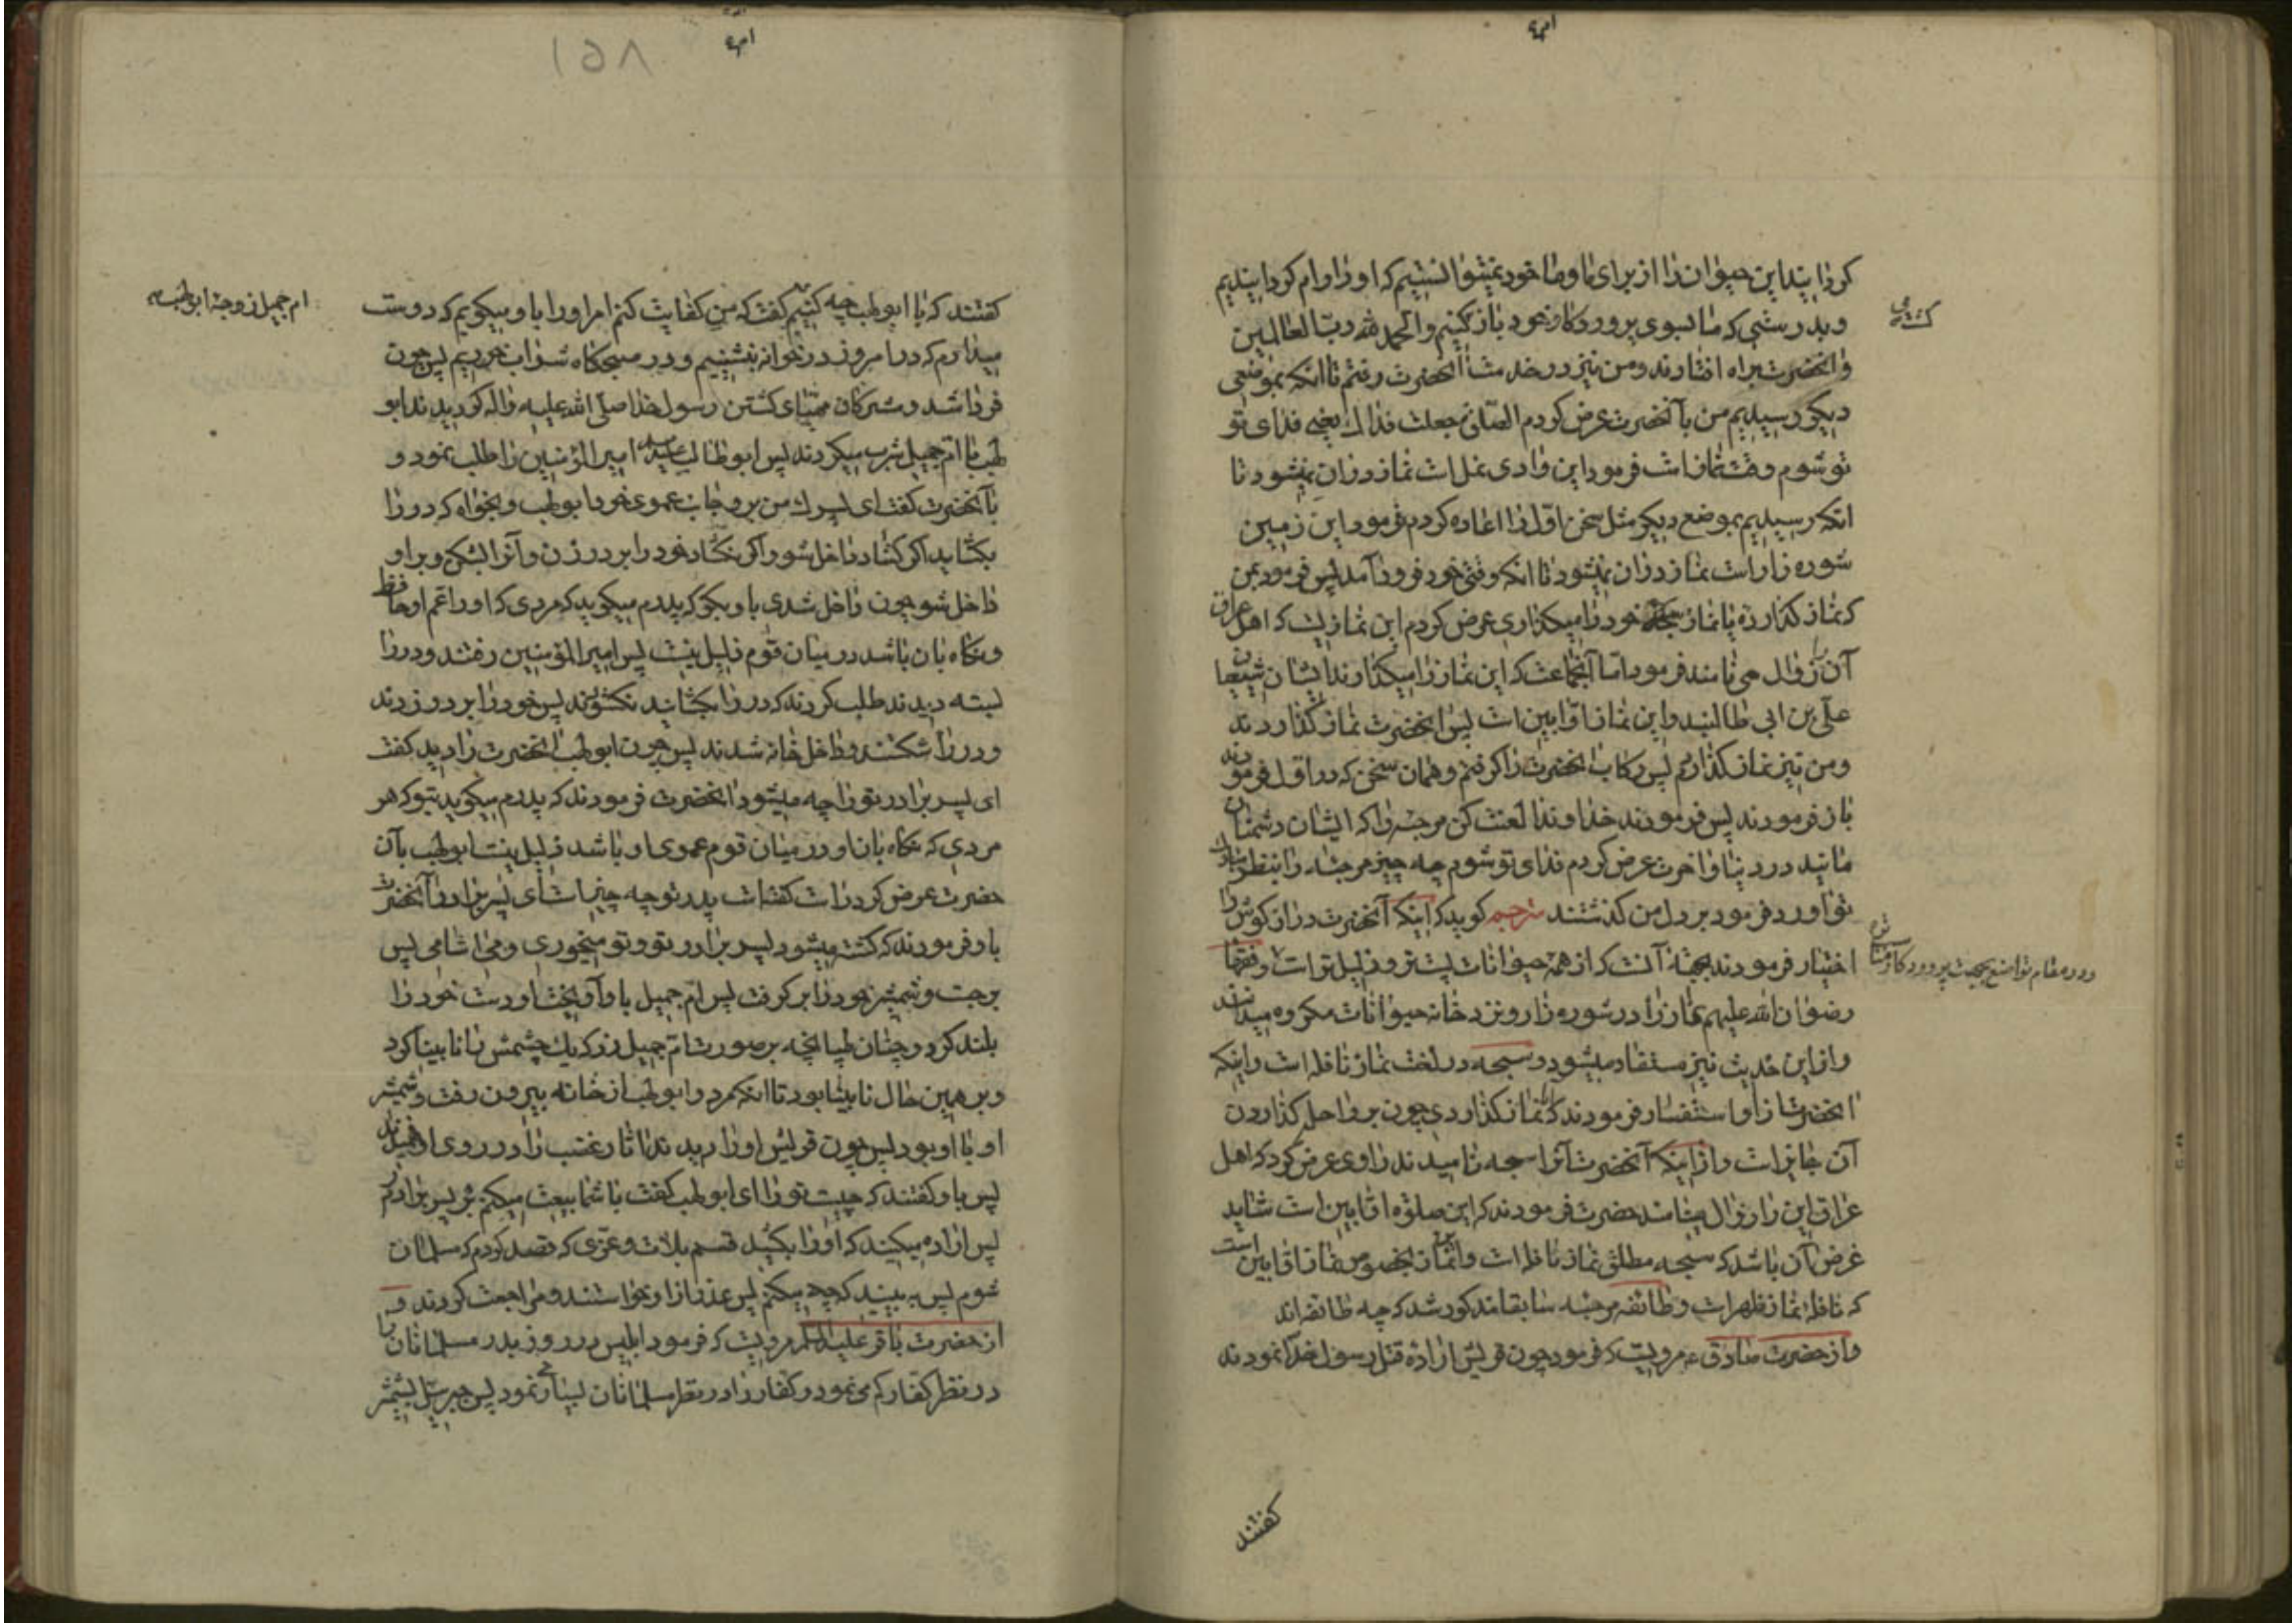 گردانید این حیوان را از برای ما و ما خود نمیتوانستیم که او را رام گردانیدیم
و بدرستی که ما بسوی پروردگار خود باز گشت کنیم و الحمد لله رب العالمین
و آنحضرت براه افتادند و من نیز در خدمت آنحضرت رفتم تا آنکه بموضعی
دیگر رسیدیم من بآنحضرت عرض کردم الصلوة جعلت فداك یعنی فدای تو
تو شوم وقت نماز است فرمود این وادی نمل است نماز در آن نمیشود تا
آنکه رسیدیم بموضع دیگر مثل سخن اول را اعاده کردم فرمود این زمین
شوره زار است نماز در آن نمیشود تا آنکه وقتی خود فرود آمد پس فرمود بمن
که نماز گذارده یا نماز سبحه خود را میگذاری عرض کردم این نمازیست که اهل عراق
آن را زوال می نامند فرمود اما آنجماعت که این نماز را میگذارند ایشان شیعیان
علی بن ابی طالبند و این نماز اوابین است پس آنحضرت نماز گذاردند
و من نیز نماز گذاردم پس رکاب آنحضرت را گرفتم و همان سخن که در اول فرمودند
باز فرمودند پس فرمودند خداوندا لعنت کن مرجئه را که ایشان دشمنان
مایند در دنیا و آخرت عرض کردم فدای تو شوم چه چیز مرجئه را بنظر مبارك
تو آورد فرمود بر دل من گذشتند مترجم گوید که اینکه آنحضرت درازگوش را
اختیار فرمودند بجهة آنست که از همه حیوانات پست تر و ذلیل تر است و فقها
رضوان الله علیهم نماز را در شوره زار و نزد خانه حیوانات مکروه میدانند
و از این حدیث نیز مستفاد میشود و سبحه در لغت نماز نافله است و اینکه
آنحضرت از او استفسار فرمودند که نماز گذاردی چون بر راحله گذاردن
آن جایز است و از اینکه آنحضرت آنرا سبحه نامیدند راوی عرض کرد که اهل
عراق این را زوال مینامند حضرت فرمودند که این صلوة اوابین است شاید
غرض آن باشد که سبحه مطلق نماز نافله است و این نماز بخصوص نماز اوابین است
که نافله نماز ظهر است و طائفه مرجئه سابقا مذکور شد که چه طائفه اند
و از حضرت صادق ع مرویست که فرمود چون قریش اراده قتل رسول خدا نمودند
گفتند
در مقام تواضع بجهت پروردگار
۱۵۸
گفتند که با ابو لهب چه کنیم گفت که من کفایت کنم امر او را باو میگویم که دوست
میدارم که در امروز در خانه بنشینیم و در صبحگاه شراب خوریم پس چون
فردا شد و مشرکان مهیای کشتن رسول خدا صلی الله علیه و آله گردیدند ابو
لهب با ام جمیل شرب میکردند پس ابو طالب امیر المؤمنین را طلب نمود و
بآنحضرت گفت ای پسرك من برو بجانب عموی خود ابو لهب و بخواه که در را
بگشاید اگر گشاد داخل شو و اگر نگشاد خود را بر در زن و آنرا بشکن و بر او
داخل شو چون داخل شدی باو بگو که پدرم میگوید که مردی که او را عم او حافظ
و نگاه بان باشد در میان قوم ذلیل نیست پس امیر المؤمنین رفتند و در را
بسته دیدند طلب کردند که در را بگشایند نگشودند پس خود را بر در زدند
و در را شکستند و داخل خانه شدند پس چون ابو لهب آنحضرت را دید گفت
ای پسر برادر تو را چه میشود آنحضرت فرمودند که پدرم میگوید بتو که هر
مردی که نگاه بان او در میان قوم عموی او باشد ذلیل نیست ابو لهب بآن
حضرت عرض کرد راست گفته است پدر تو چه چیز است ای پسر برادر آنحضرت
باو فرمودند که کشته میشود پسر برادر تو و تو میخوری و می آشامی پس
برجست و شمشیر خود را بر گرفت پس ام جمیل باو آویخت او دست خود را
بلند کرد و چنان طپانچه بر صورت ام جمیل زد که یك چشمش را نابینا کرد
و بر همین حال نابینا بود تا آنکه مرد و ابو لهب از خانه بیرون رفت و شمشیر
او با او بود پس چون قریش او را دیدند آثار غضب را در روی او فهمیدند
پس باو گفتند که چیست تو را ای ابو لهب گفت با شما بیعت میکنم بر پسر برادرم
پس اراده میکنید که او را بکشید قسم بلات و عزی که قصد کردم که مسلمان
شوم پس ببینید که چه میکنم پس عذر از او خواستند و مراجعت کردند و
از حضرت باقر علیه السلام مرویست که فرمود ابلیس در روز بدر مسلمانان را
در نظر کفار کم می نمود و کفار را در نظر مسلمانان بسیار می نمود پس جبرئیل بشمشیر
ام جمیل زوجه ابو لهب